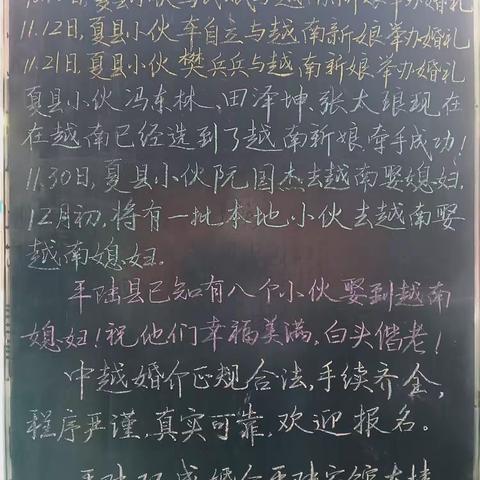 11.12日,夏县小伙李自立与越南新娘举办婚礼
11.21日,夏县小伙樊兵兵与越南新娘举办婚礼
夏县小伙冯东林、田泽坤、张太银现在
在越南已经选到了越南新娘,牵手成功!
11.30日,夏县小伙阮国杰去越南娶媳妇.
12月初,将有一批本地小伙去越南娶
越南媳妇.
平陆县已知有八个小伙娶到越南
媳妇!祝他们幸福美满,白头偕老!
中越婚介正规合法,手续齐全,
程序严谨,真实可靠,欢迎报名。